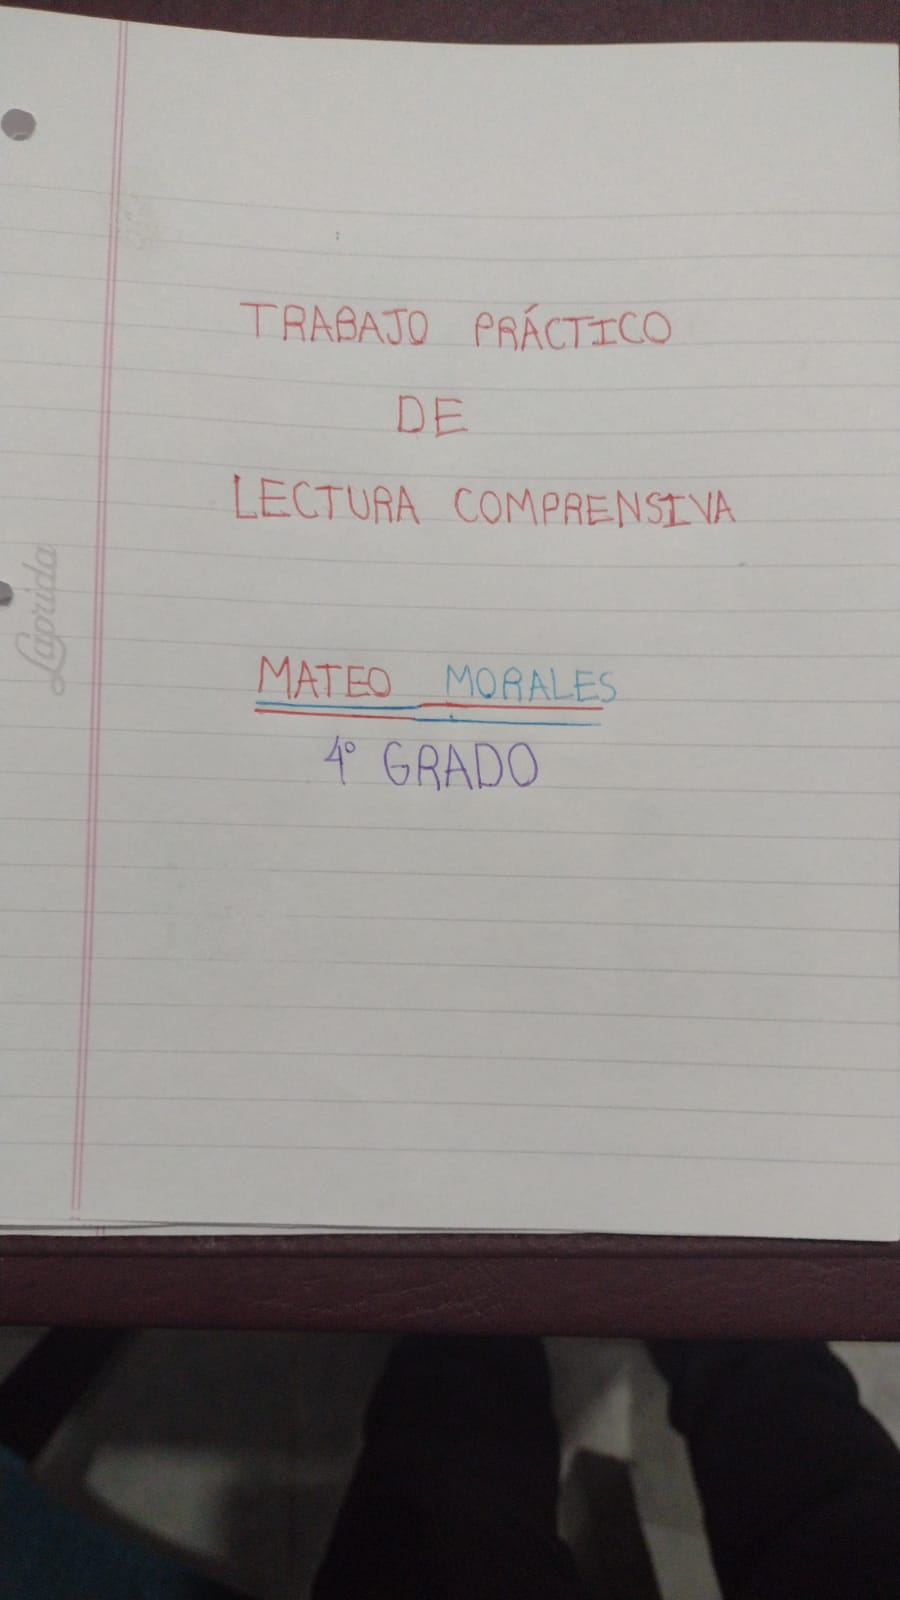 TRABAJO PRÁCTICO
DE
LECTURA COMPRENSIVA
Laprida
MATEO MORALES
4º GRADO